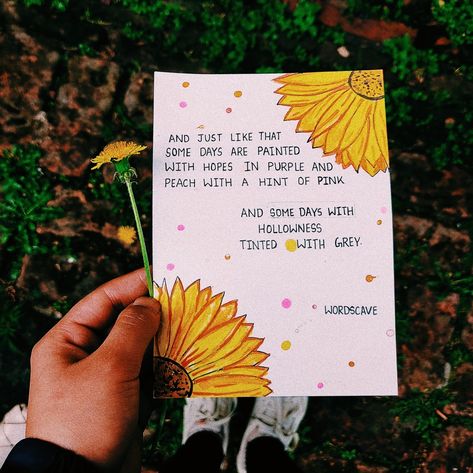 AND JUST LIKE THAT
SOME DAYS ARE PAINTED
WITH HOPES IN PURPLE AND
PEACH WITH A HINT OF PINK
AND SOME DAYS WITH
HOLLOWNESS
TINTED WITH GREY.
WORDSCAVE